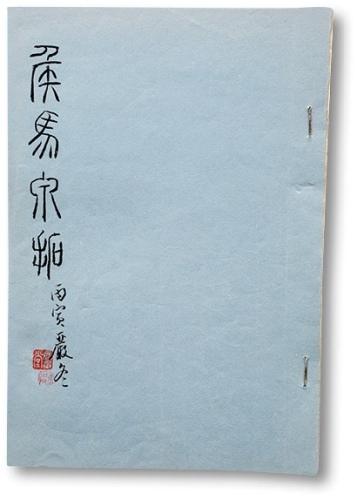 侯馬泉拓
丙寅嚴冬